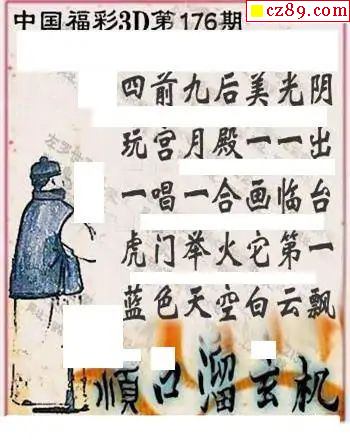 cz89.com
中国福彩3D第176期
四前九后美光阴
玩宫月殿一一出
一唱一合画临台
虎门举火它第一
蓝色天空白云飘
順口溜玄机